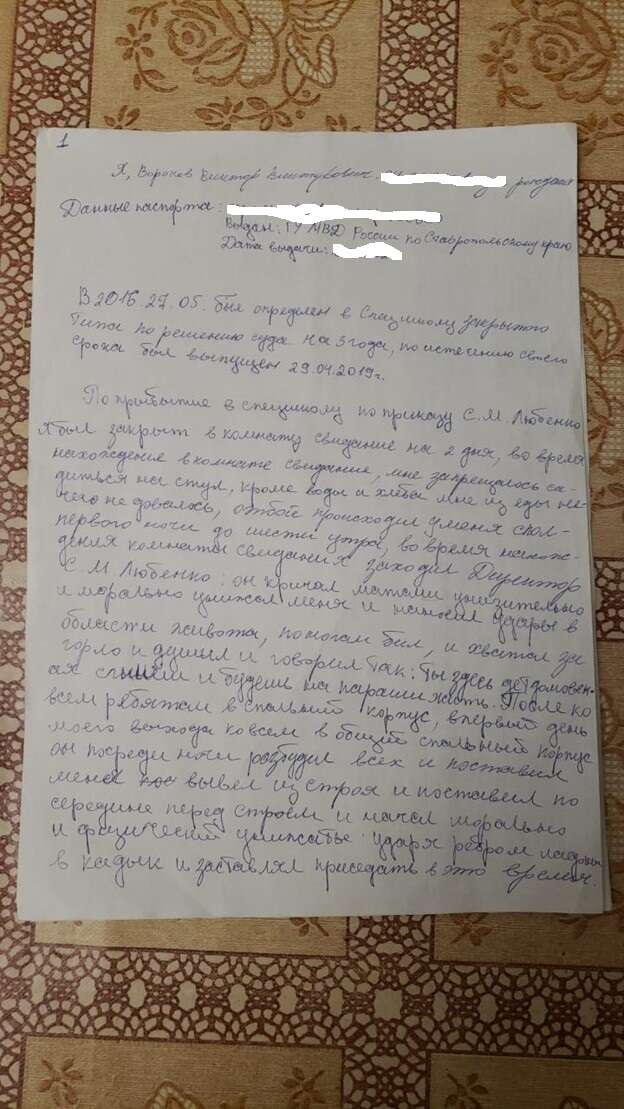 1
Я, Воронов Виктор Викторович. рождения
Данные паспорта:
Выдан: ГУ МВД России по Ставропольскому краю
Дата выдачи:
В 2016. 27. 05. был определен в Спецшколу закрытого
Типа по решению суда на 3 года, по истечению своего
срока был выпущен 29.04.2019г.
По прибытие в спецшколу по приказу С.М. Любенко
я был закрыт в комнату свидание на 2 дня, во время
нахождение в комнате свидание, мне запрещалось са-
диться на стул, кроме воды и хлеба мне из еды не-
чего не довалось, отбой происходил у меня с пол-
первого ночи до шести утра, во время нахож-
дения комнаты свидания заходил Директор
С.М. Любенко: он кричал матами унизительно
и морально унижал меня и наносил удары в
области живота, по ногам бил, и хватал за
горло и душил и говорил так: ты здесь детдомовен-
всем ребятам в спальный корпус, в первый день
моего выхода ко всем в общий спальный корпус
он посреди ночи разбудил всех и поставил
меня вывел из строя и поставил по
середине перед строем и начал морально
и физический унижать ударя ребром ладони
в кадык и заставлял приседать в это время.